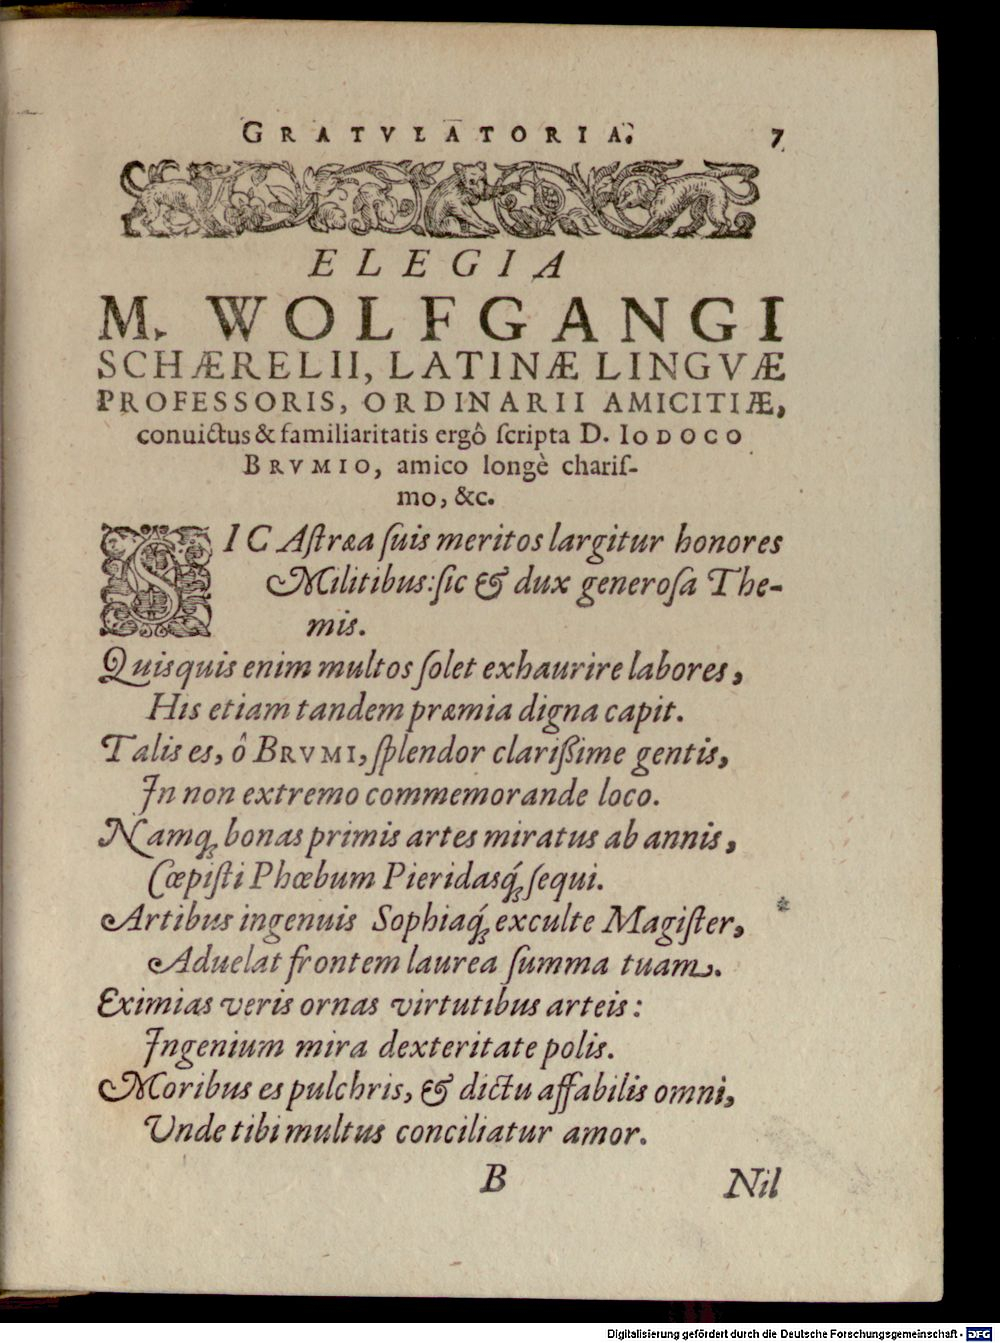 GRATVLATORIA. 7
ELEGIA
M. WOLFGANGI
SCHÆRELII, LATINÆ LINGVÆ
PROFESSORIS, ORDINARII AMICITIÆ,
conuictus & familiaritatis ergô ſcripta D. IODOCO
BRVMIO, amico longè chariſ-
mo, &c.
SIC Aſtræa ſuis meritos largitur honores
Militibus: ſic & dux generoſa The-
mis.
Quisquis enim multos ſolet exhaurire labores,
His etiam tandem præmia digna capit.
Talis es, ô BRVMI, ſplendor clarißime gentis,
In non extremo commemorande loco.
Namq; bonas primis artes miratus ab annis,
Cœpiſti Phœbum Pieridasq́; ſequi.
Artibus ingenuis Sophiaq́; exculte Magiſter,
Aduelat frontem laurea ſumma tuam.
Eximias veris ornas virtutibus arteis:
Ingenium mira dexteritate polis.
Moribus es pulchris, & dictu affabilis omni,
Vnde tibi multus conciliatur amor.
B Nil
Digitalisierung gefördert durch die Deutsche Forschungsgemeinschaft - DFG